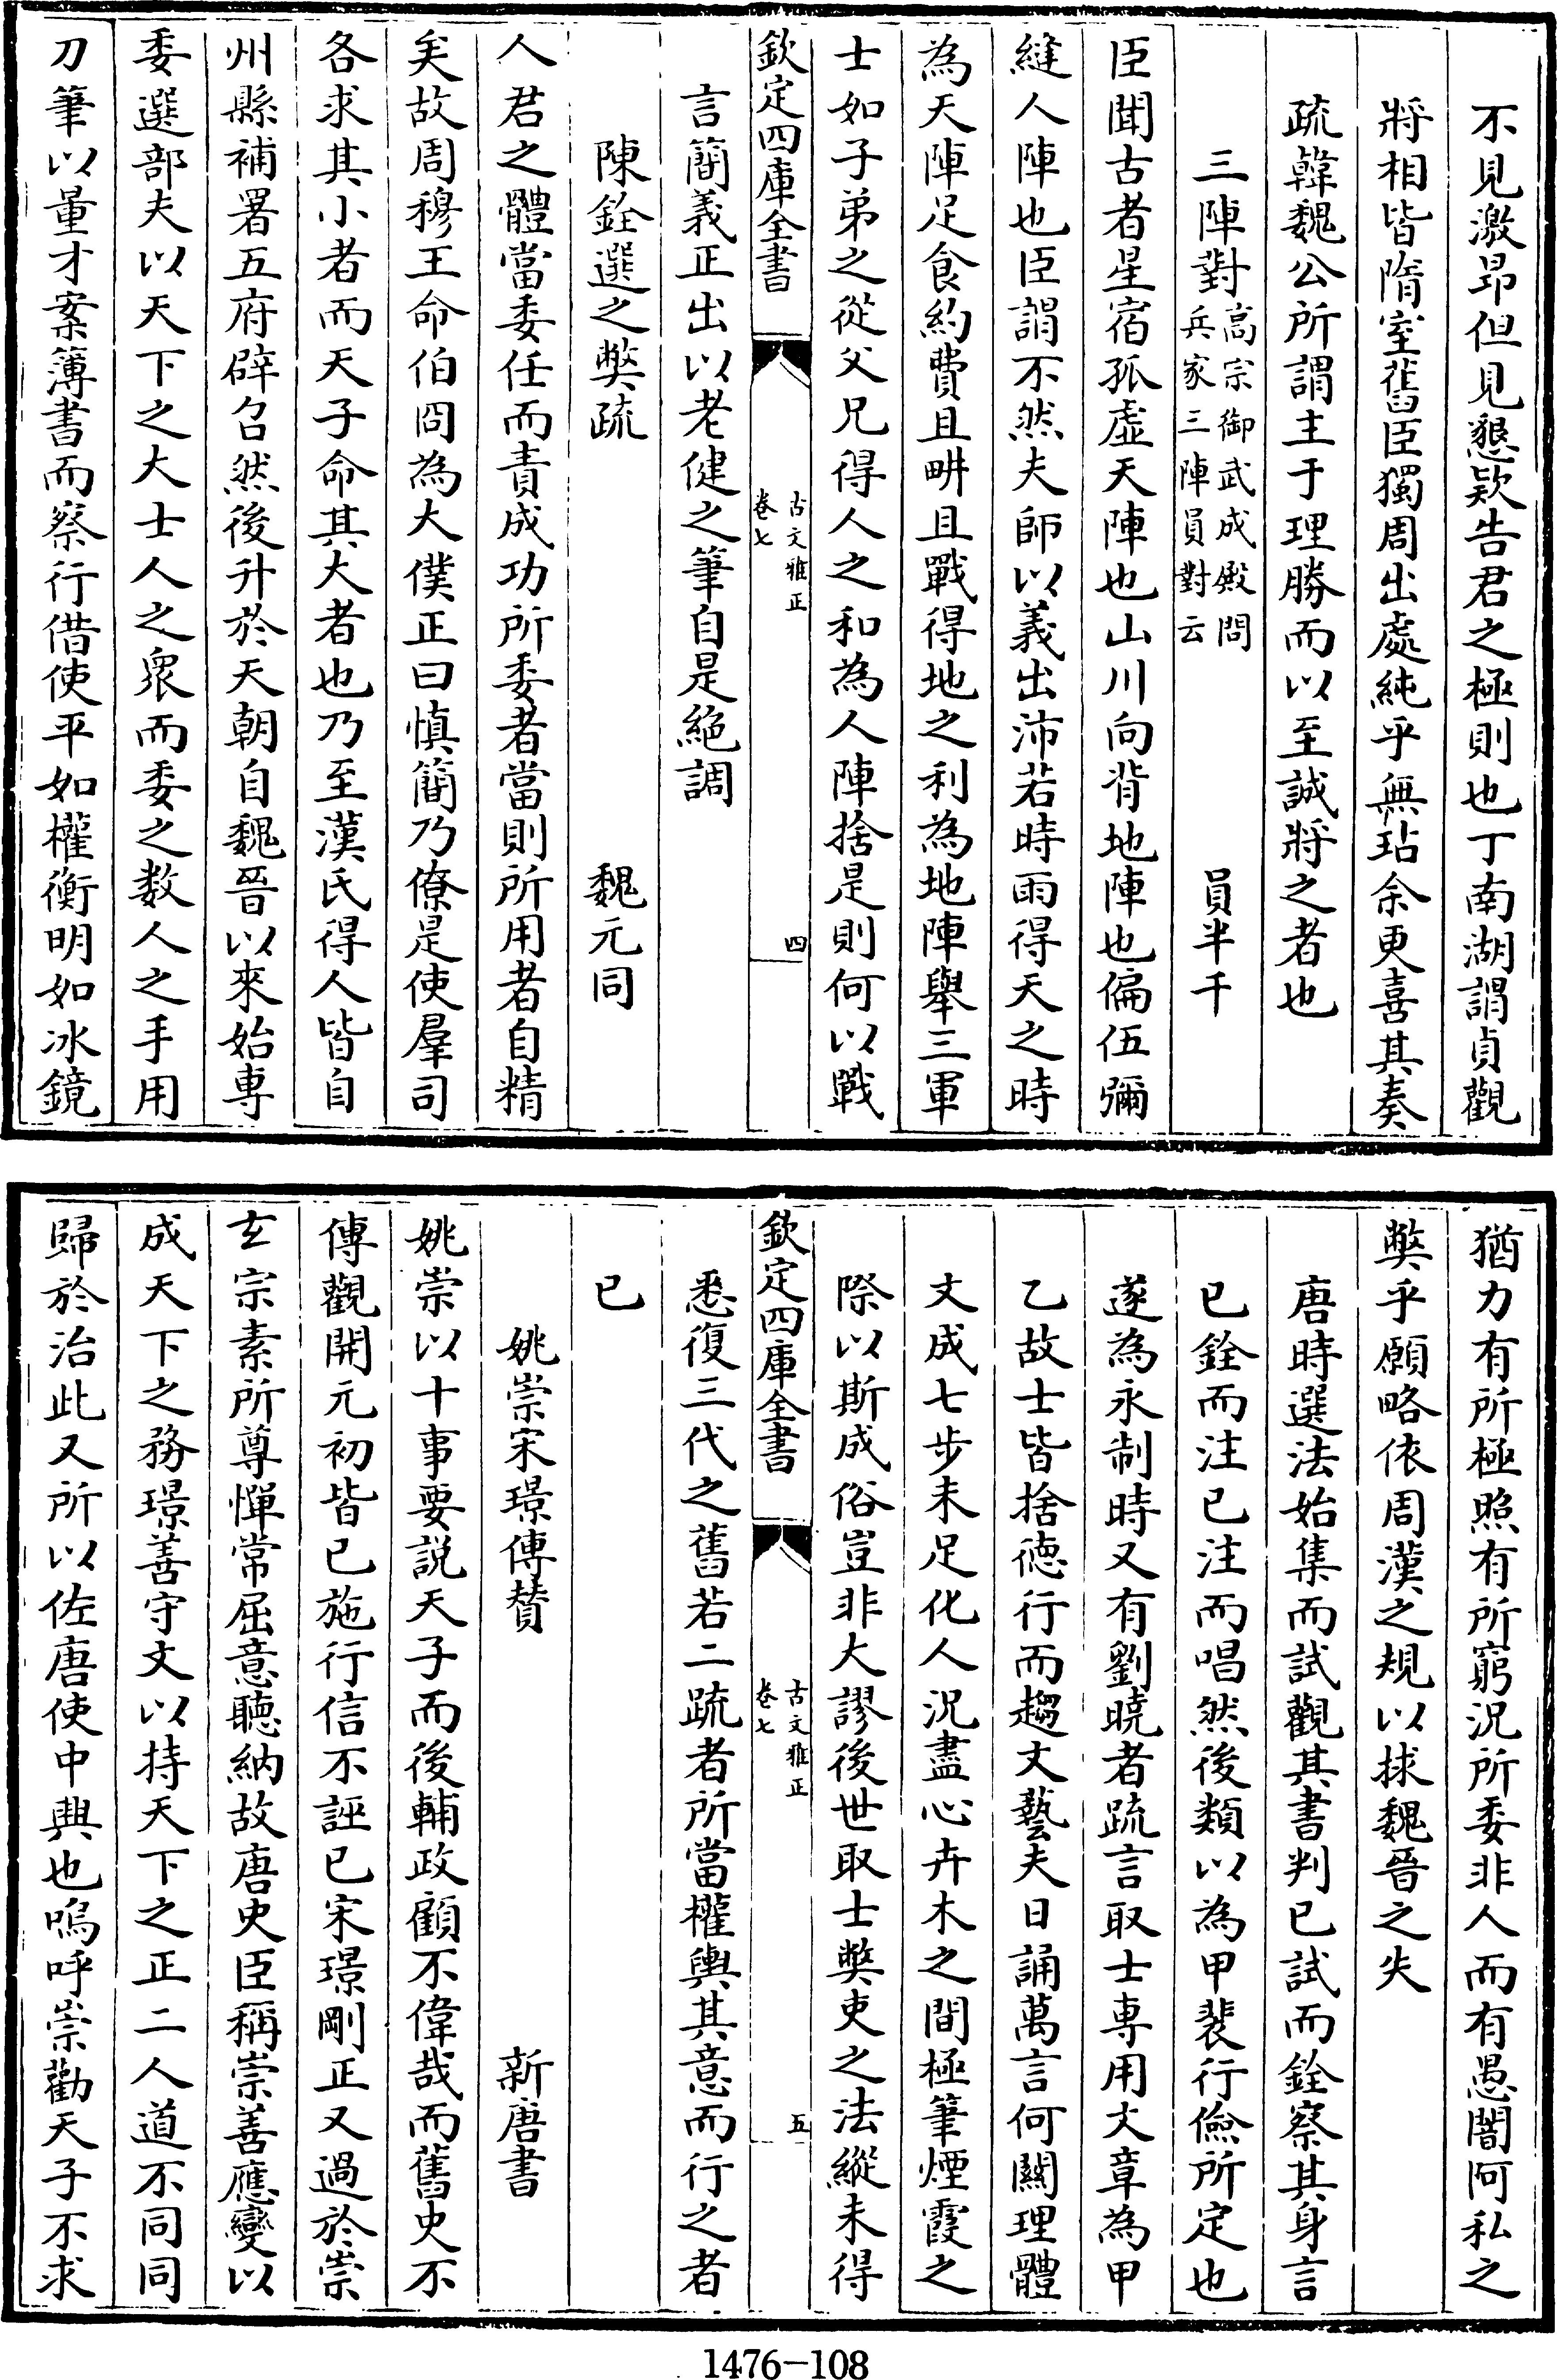 不見激昂但見懇欵告君之極則也丁南湖謂貞觀
將相皆隋室舊臣獨周出處純乎無玷余更喜其奏
疏韓魏公所謂主于理勝而以至誠將之者也
三陣對高宗御武成殿問兵家三陣員對云 員半千
臣聞古者星宿孤虛天陣也山川向背地陣也偏伍彌
縫人陣也臣謂不然夫師以義出沛若時雨得天之時
為天陣足食約費且畊且戰得地之利為地陣舉三軍
士如子弟之從父兄得人之和為人陣捨是則何以戰
欽定四庫全書 古文雅正 卷七 四
言簡義正出以老健之筆自是絕調
陳銓選之弊疏 魏元同
人君之體當委任而責成功所委者當則所用者自精
矣故周穆王命伯冏為大僕正曰慎簡乃僚是使羣司
各求其小者而天子命其大者也乃至漢氏得人皆自
州縣補署五府辟召然後升於天朝自魏晉以來始専
委選部夫以天下之大士人之衆而委之数人之手用
刀筆以量才案簿書而察行借使平如權衡明如冰鏡
猶力有所極照有所窮況所委非人而有愚闇阿私之
弊乎願略依周漢之規以捄魏晉之失
唐時選法始集而試觀其書判已試而銓察其身言
已銓而注已注而唱然後類以為甲裴行儉所定也
遂為永制時又有劉曉者疏言取士専用文章為甲
乙故士皆捨徳行而趨文藝夫日誦萬言何關理體
文成七步未足化人況盡心卉木之間極筆煙霞之
際以斯成俗豈非大謬後世取士弊吏之法縱未得
欽定四庫全書 古文雅正 卷七 五
悉復三代之舊若二疏者所當權輿其意而行之者
已
姚崇宋璟傳贊 新唐書
姚崇以十事要説天子而後輔政顧不偉哉而舊史不
傳觀開元初皆已施行信不誣已宋璟剛正又過於崇
玄宗素所尊憚常屈意聽納故唐史臣稱崇善應變以
成天下之務璟善守文以持天下之正二人道不同同
歸於治此又所以佐唐使中興也嗚呼崇勸天子不求
1476-108